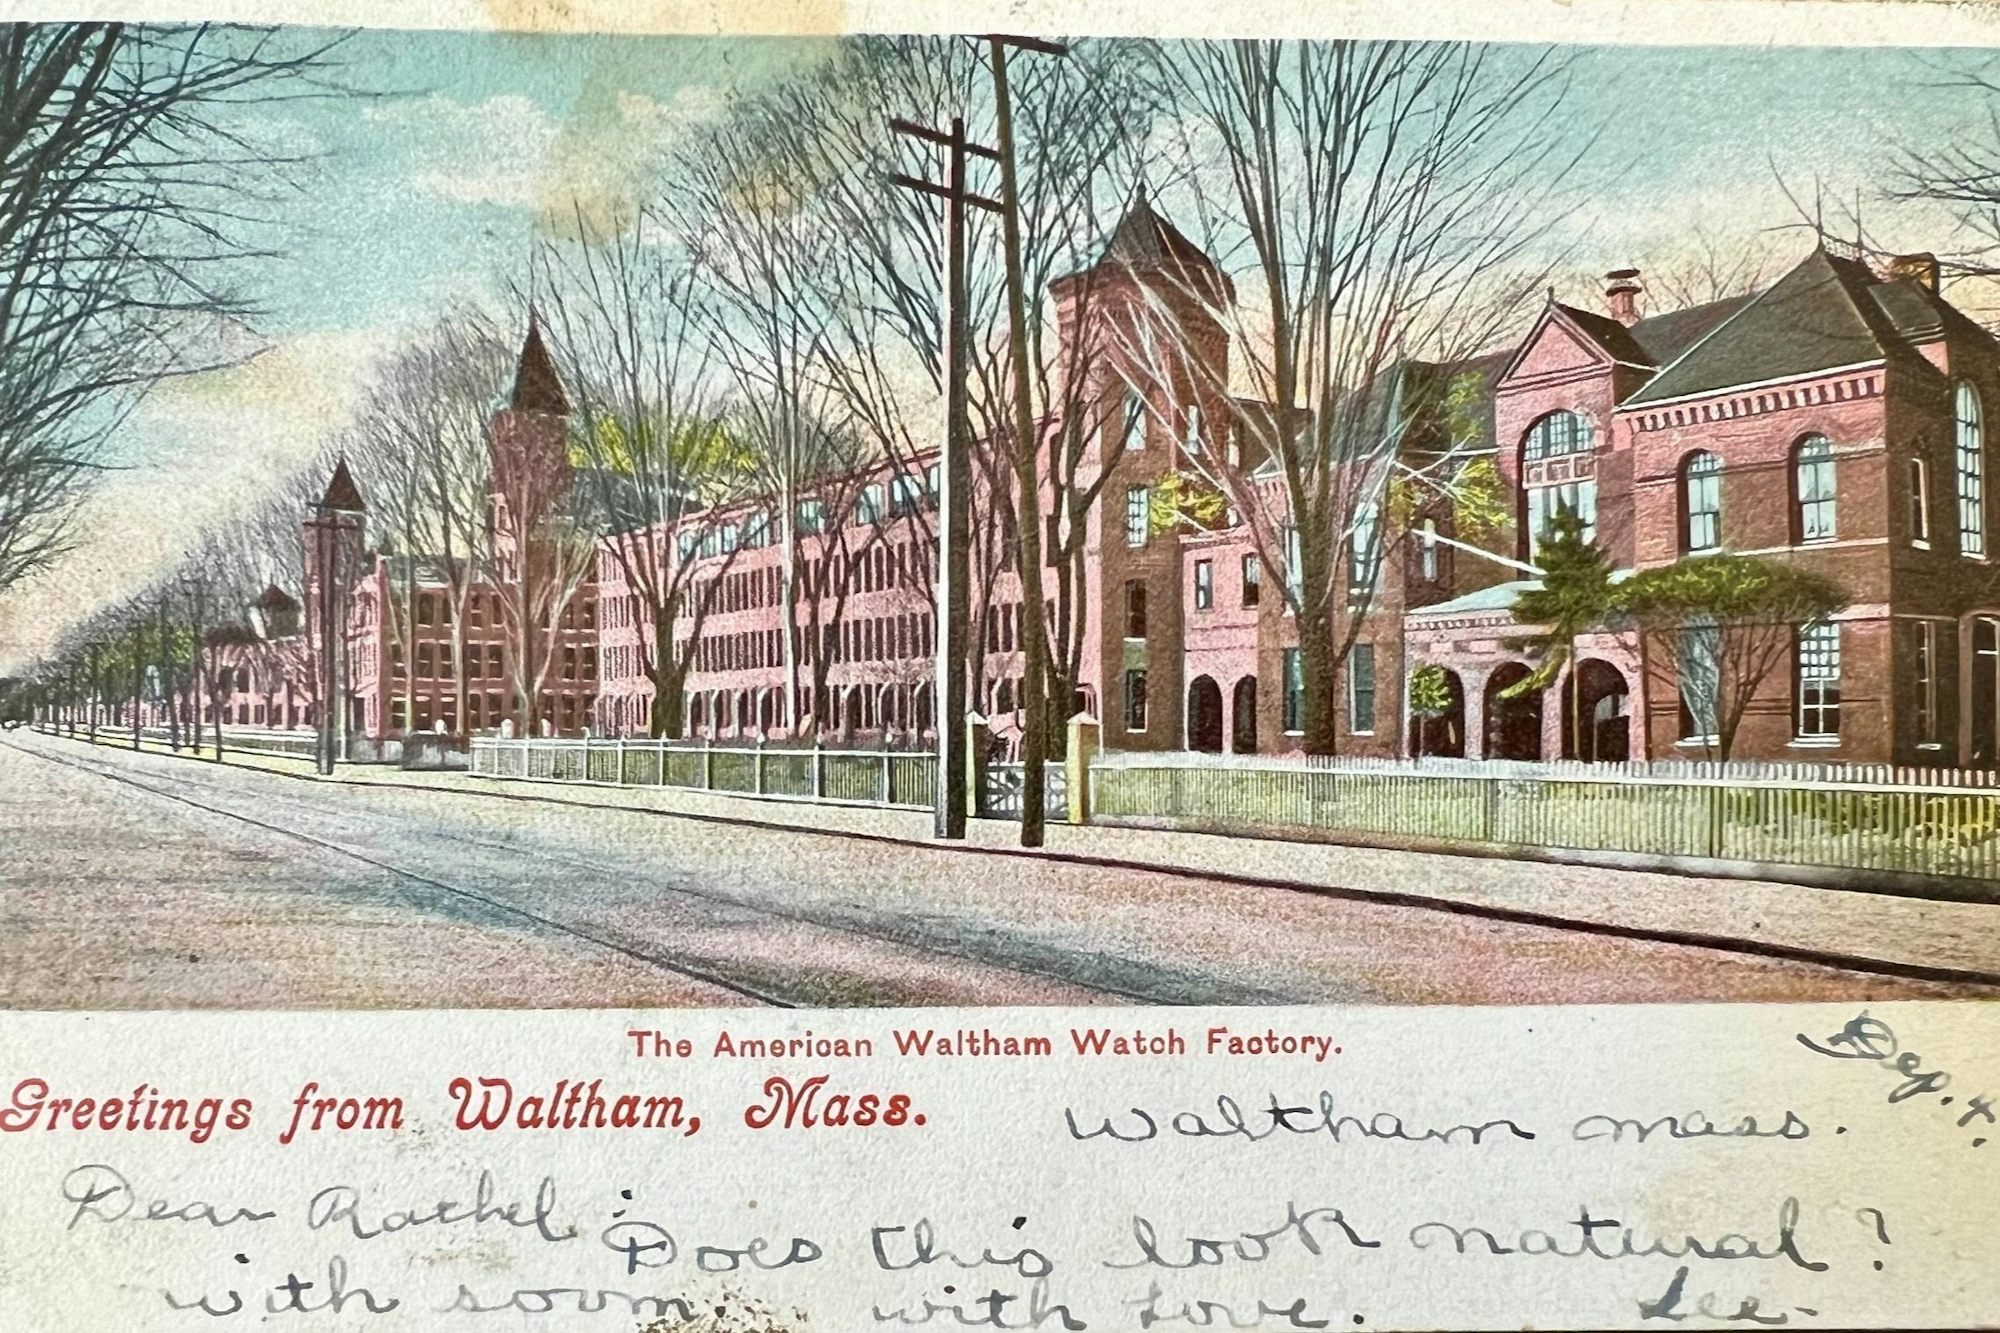 The American Waltham Watch Factory.
Greetings from Waltham, Mass.
Waltham Mass.
Dear Rachel:
Does this look natural?
with
with Love. Lee-